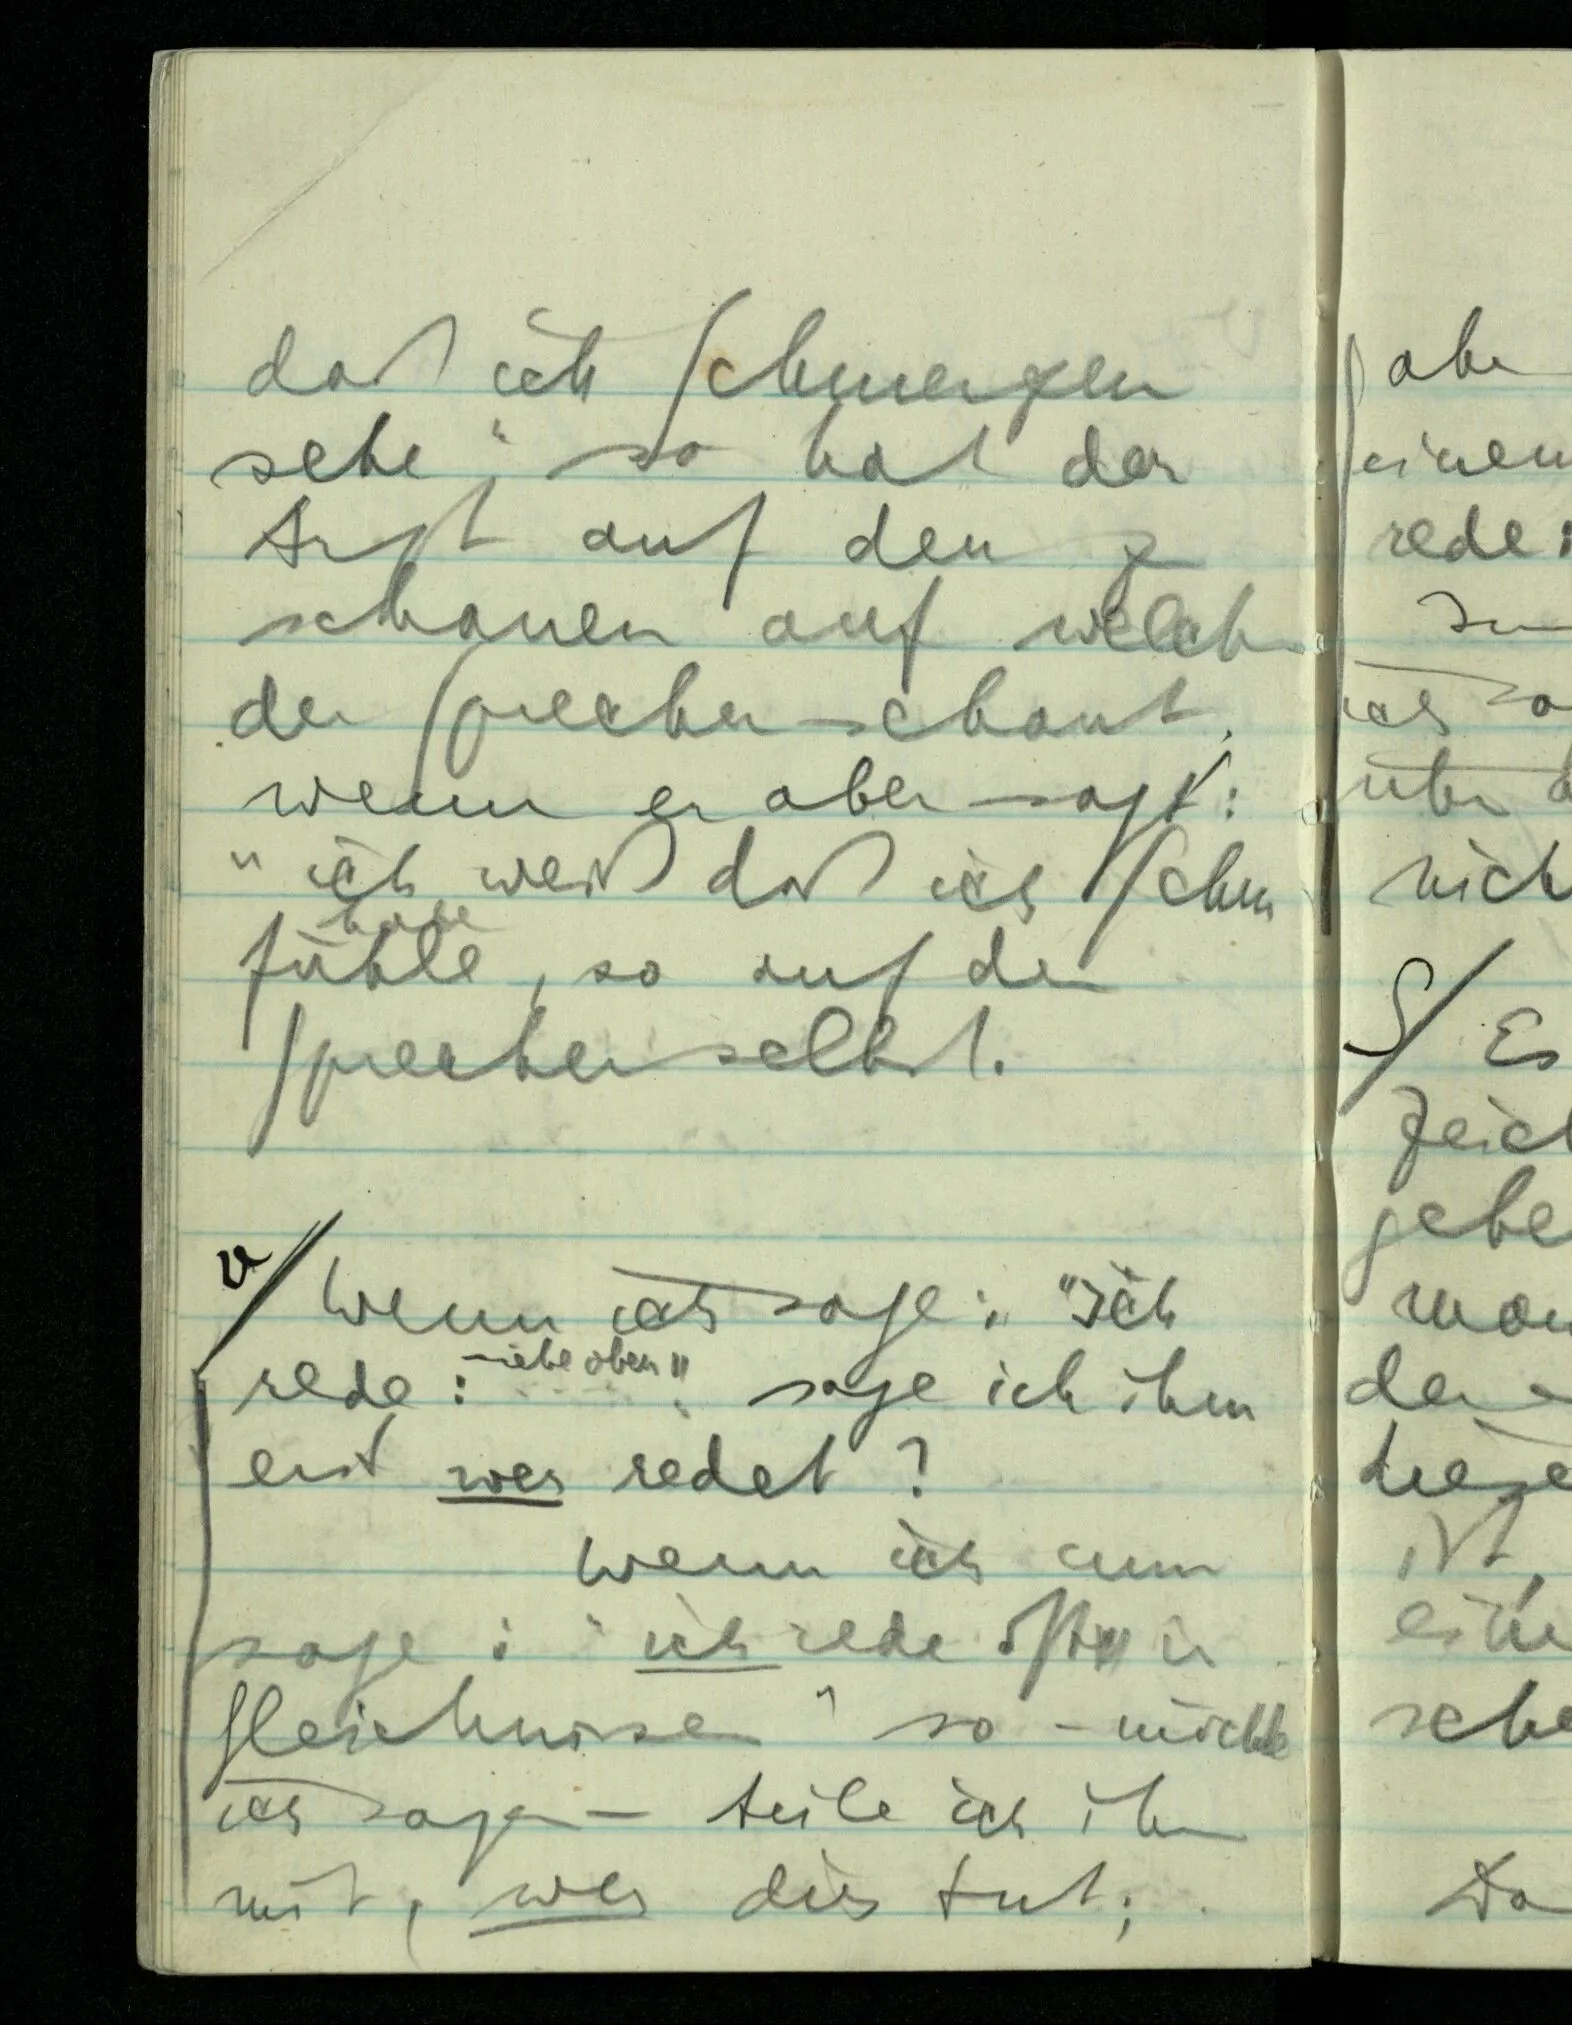 daß ich Schmerzen
sehe", so hat der
Arzt auf den z
schauen auf welchen
der Sprecher schaut,
wenn er aber sagt:
"ich weiß daß ich Schm
habe
fühle, so auf den
Sprecher selbst.
v/ Wenn ich sage: "Ich
siehe oben"
rede: sage ich ihm
erst wer redet?
Wenn ich nun
sage: "ich rede öfter in
Gleichnissen" so – möchte
ich sagen – teile ich ihm
mit, wer dies tut;
aber
einem
rede:
ich
über
nich
S/ Es
Zeich
gebe
man
der
diese
ist,
eine
sehe
Da